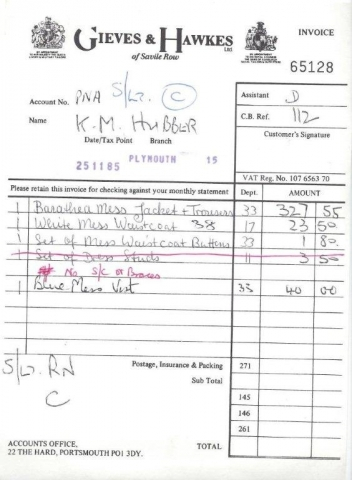 GIEVES & HAWKES Ltd.
of Savile Row
INVOICE
65128
Account No. PNA S/Lt. C
Assistant D
Name K.M. HUBBER
C.B. Ref. 112
Date/Tax Point Branch
Customer's Signature
251185 PLYMOUTH 15
VAT Reg. No. 107 6563 70
Please retain this invoice for checking against your monthly statement Dept. AMOUNT
1 Barathea Mess Jacket + Trousers 33 327 55
1 White Mess Waistcoat 38 17 23 50
1 Set of Mess Waistcoat Buttons 23 1 80
1 Set of Dress Studs 11 3 50
No S/C or Braces
1 Blue Mess Vest 33 40 00
S/Lt. RN
C
Postage, Insurance & Packing 271
Sub Total
145
146
261
ACCOUNTS OFFICE,
22 THE HARD, PORTSMOUTH PO1 3DY.
TOTAL